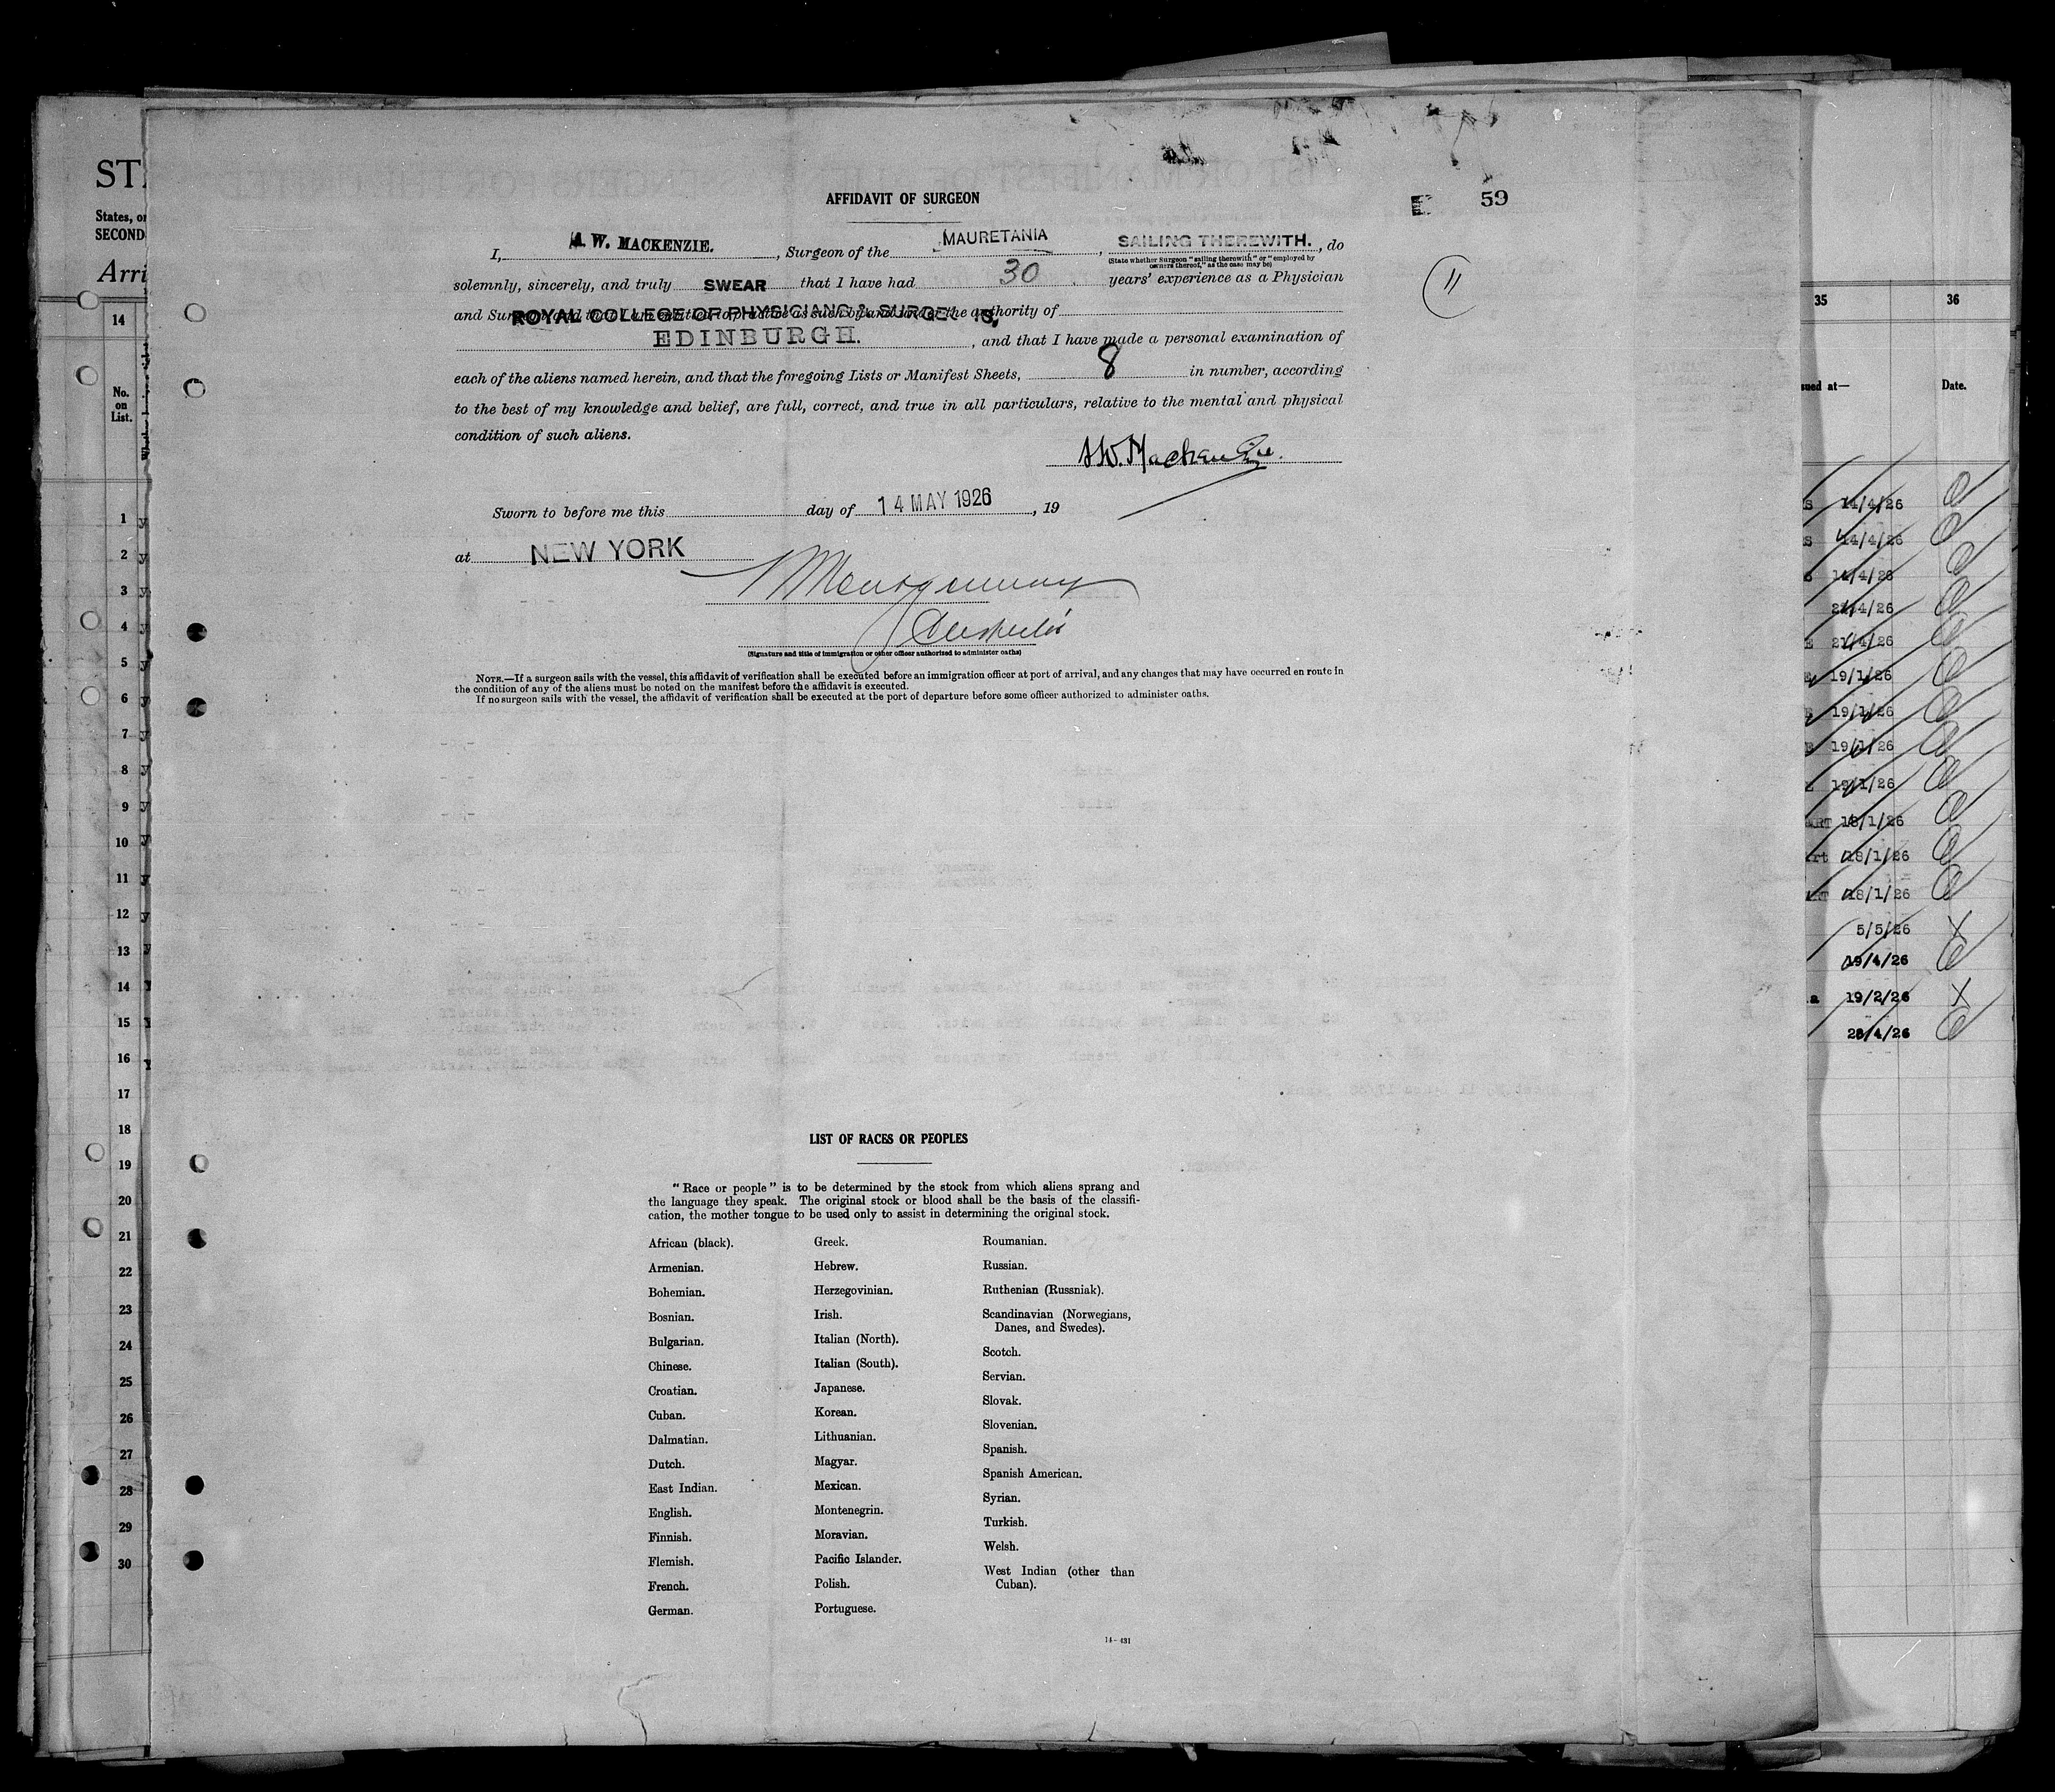 AFFIDAVIT OF SURGEON
E 59
I, A. W. MACKENZIE. , Surgeon of the MAURETANIA , SAILING THEREWITH. , do
(State whether Surgeon "sailing therewith" or "employed by
owners thereof," as the case may be)
solemnly, sincerely, and truly SWEAR that I have had 30 years' experience as a Physician
11
and ROYAL COLLEGE OF PHYSICIANS & the authority of
EDINBURGH. , and that I have made a personal examination of
each of the aliens named herein, and that the foregoing Lists or Manifest Sheets, 8 in number, according
to the best of my knowledge and belief, are full, correct, and true in all particulars, relative to the mental and physical
condition of such aliens.
A.W. Mackenzie.
Sworn to before me this day of 14 MAY 1926 , 19
at NEW YORK
Montgomery
(Signature and title of immigration or other officer authorized to administer oaths)
NOTE.—If a surgeon sails with the vessel, this affidavit of verification shall be executed before an immigration officer at port of arrival, and any changes that may have occurred en route in
the condition of any of the aliens must be noted on the manifest before the affidavit is executed.
If no surgeon sails with the vessel, the affidavit of verification shall be executed at the port of departure before some officer authorized to administer oaths.
LIST OF RACES OR PEOPLES
"Race or people" is to be determined by the stock from which aliens sprang and
the language they speak. The original stock or blood shall be the basis of the classifi-
cation, the mother tongue to be used only to assist in determining the original stock.
African (black).
Armenian.
Bohemian.
Bosnian.
Bulgarian.
Chinese.
Croatian.
Cuban.
Dalmatian.
Dutch.
East Indian.
English.
Finnish.
Flemish.
French.
German.
Greek.
Hebrew.
Herzegovinian.
Irish.
Italian (North).
Italian (South).
Japanese.
Korean.
Lithuanian.
Magyar.
Mexican.
Montenegrin.
Moravian.
Pacific Islander.
Polish.
Portuguese.
Roumanian.
Russian.
Ruthenian (Russniak).
Scandinavian (Norwegians,
Danes, and Swedes).
Scotch.
Servian.
Slovak.
Slovenian.
Spanish.
Spanish American.
Syrian.
Turkish.
Welsh.
West Indian (other than
Cuban).
14—431
STA
States, or
SECOND
Arri
14
No.
on
List.
1 y
2 y
3 y
4 y
5 y
6 y
7 y
8 y
9 y
10 y
11 y
12 y
13 y
14 Y
15 Y
16 Y
17
18
19
20
21
22
23
24
25
26
27
28
29
30
35 36
sued at— Date.
S 14/4/26
S 14/4/26
S 14/4/26
21/4/26
E 21/4/26
E 19/1/26
E 19/1/26
E 19/1/26
E 19/1/26
ART 18/1/26
rt 18/1/26
RT 18/1/26
5/5/26 X
19/4/26
a 19/2/26 X
28/4/26